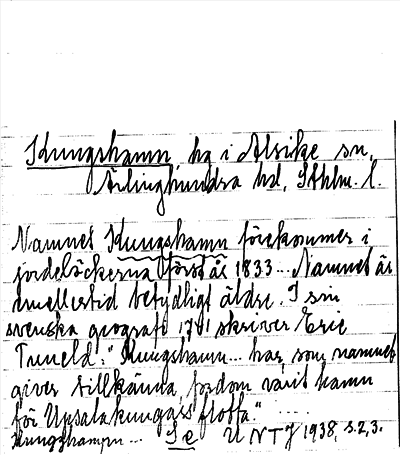 Kungshamn, hg i Alsike sn,
Ärlinghundra hd, Sthlm. l.
Namnet Kungshamn förekommer i
jordeböckerna först år 1833... Namnet är
emellertid betydligt äldre. I sin
svenska geografi 1741 skriver Eric
Tuneld: "Kungshamn... har, som namnet
giver tillkänna, fordom varit hamn
för Upsalakungars flotta." .....
Kungshamn... Se UNT 7/1 1938, s. 2, 3.